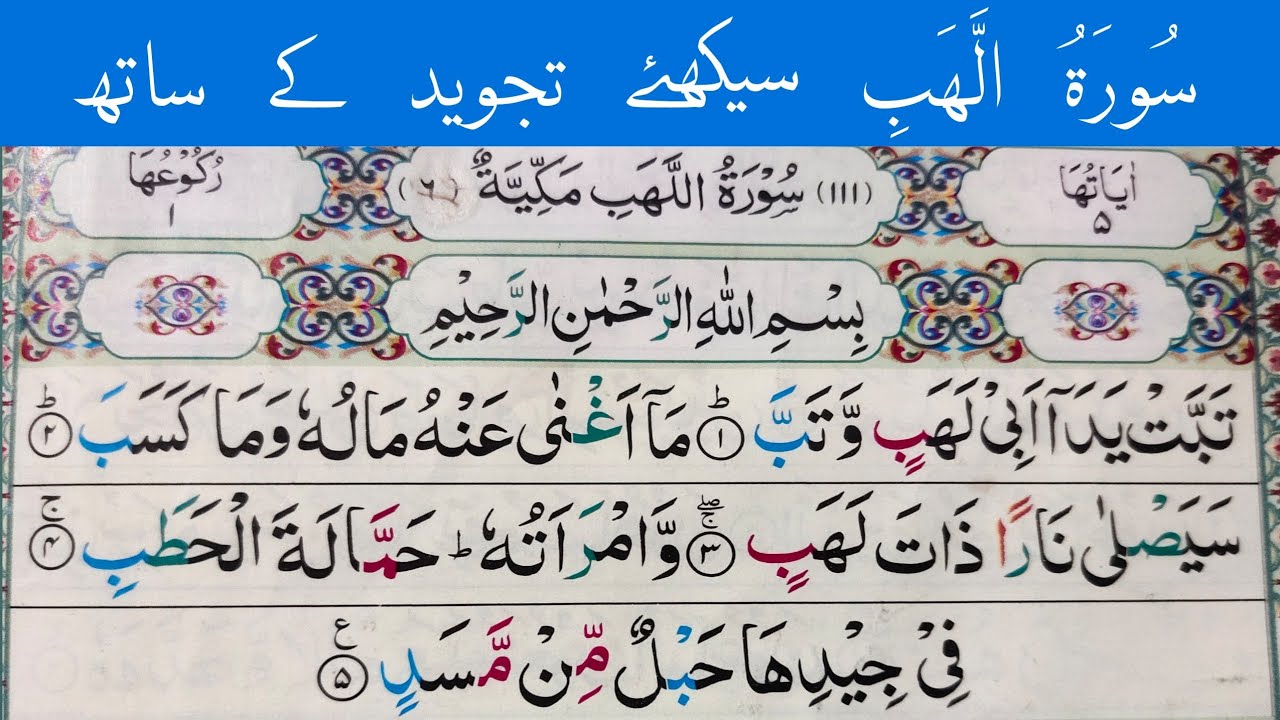 سُورَةُ الَّهَبِ سیکھئے تجوید کے ساتھ
اٰیَاتُهَا ۵
(۱۱۱) سُوْرَةُ اللَّهَبِ مَكِّيَّةٌ (٦)
رُكُوْعُهَا ۱
بِسْمِ اللهِ الرَّحْمٰنِ الرَّحِيْمِ
تَبَّتْ يَدَآ اَبِيْ لَهَبٍ وَّتَبَّ ؕ ﴿۱﴾ مَآ اَغْنٰى عَنْهُ مَالُهٗ وَمَا كَسَبَ ؕ ﴿۲﴾
سَيَصْلٰى نَارًا ذَاتَ لَهَبٍ ۖۚ ﴿۳﴾ وَّامْرَاَتُهٗ ؕ حَمَّالَةَ الْحَطَبِ ۚ ﴿۴﴾
فِيْ جِيْدِهَا حَبْلٌ مِّنْ مَّسَدٍ ﴿۵﴾ ع